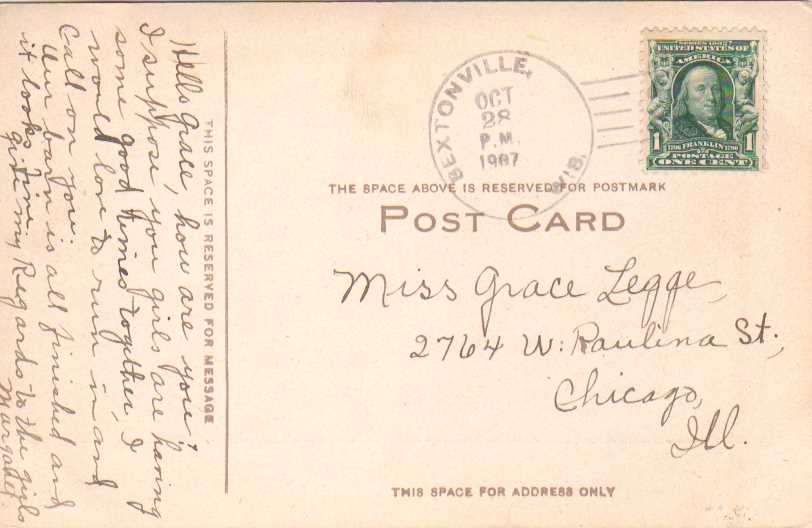 Hello Grace, how are you?
I suppose you girls are having
some good times together, I
would love to run in and
Call on you.
Our barn is all finished and
it looks fine.
give my Regards to the girls
Margaret.
THIS SPACE IS RESERVED FOR MESSAGE
BEXTONVILLE, WIS.
OCT
28
P.M.
1907
SERIES 1902
UNITED STATES OF
AMERICA
1 1
1706 FRANKLIN 1790
POSTAGE
ONE CENT
THE SPACE ABOVE IS RESERVED FOR POSTMARK
POST CARD
Miss Grace Legge,
2764 W. Paulina St.,
Chicago,
Ill.
THIS SPACE FOR ADDRESS ONLY